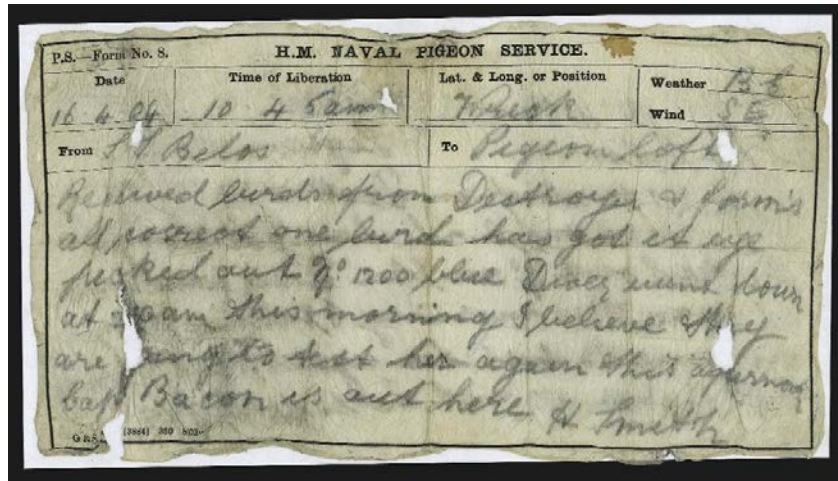 P.S.—Form No. 8. H.M. NAVAL PIGEON SERVICE.
Date Time of Liberation Lat. & Long. or Position Weather B C
16 4 04 10 4 5am Wreck Wind S E
From S S Belos To Pigeon loft
Received birds from Destroyer & form's
all correct one bird has got it eye
pecked out No 1200 blue Diver went down
at am this morning I believe they
are going to test her again this afternoon
Capt Bacon is out here H Smith
(3884) 350 8/03